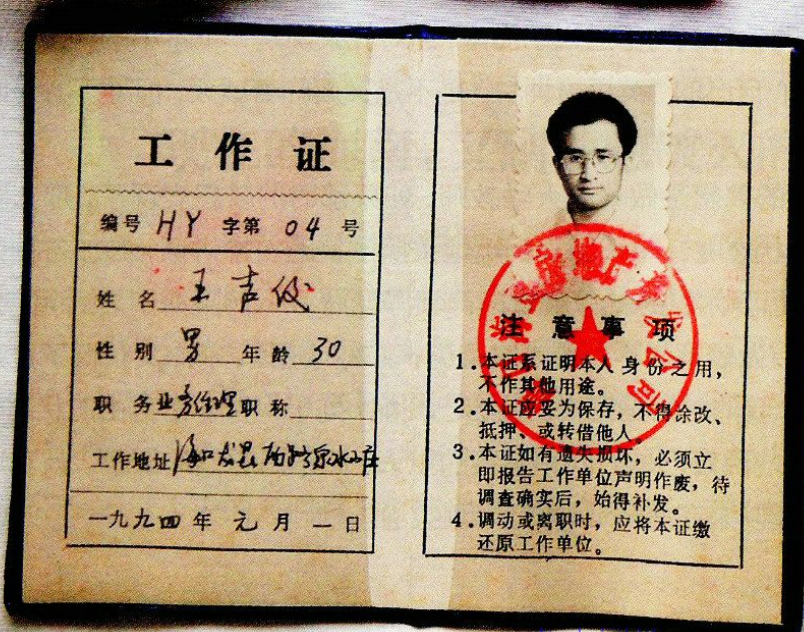 工作证
编号 HY 字第 04 号
姓名 王声
性别 男 年龄 30
职务 业务经理 职称
工作地址 海口
一九九四年元月一日
房地产开发公司
注意事项
1.本证系证明本人身份之用,
不作其他用途。
2.本证应妥为保存,不得涂改、
抵押、或转借他人。
3.本证如有遗失损坏,必须立
即报告工作单位声明作废,待
调查确实后,始得补发。
4.调动或离职时,应将本证缴
还原工作单位。